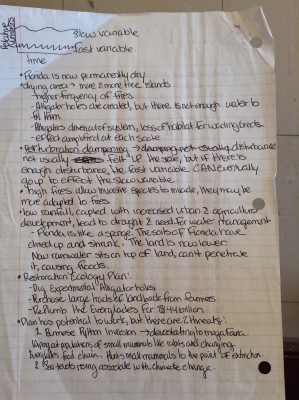 Slow variable
fast variable
time
• Florida is now permanently dry
• drying area → more & more tree islands
- higher frequency of fires
- Alligator holes are created, but there is not enough water to
fill them
- Alligators driven out of system, loss of habitat for wading birds
- effect amplified at each scale
• Perturbation dampening → dampening
not usually felt up the scale, but if there is
enough disturbance, the fast variable CAN eventually
go up to effect the slow variable
• high fires allow invasive species to invade, they may be
more adapted to fires
• low rainfall, coupled with increased urban & agricultural
development, lead to drought & need for water management
- Florida is like a sponge. The soils of Florida have
dried up and shrank. The land is now lower.
Now rainwater sits on top of land, can't penetrate
it, causing floods.
• Restoration Ecology Plan:
- Dig Experimental Alligator holes
- Purchase large tracts of land back from farmers
- RePlumb the Everglades for $
• Plan has potential to work, but there are 2 threats:
1. Burmese Python Invasion → devastating to megafauna.
populations of small mammals like rabbits and changing
Everglades food chain. Hunts small mammals to the point of extinction.
2. Sea levels rising associated with climate change.